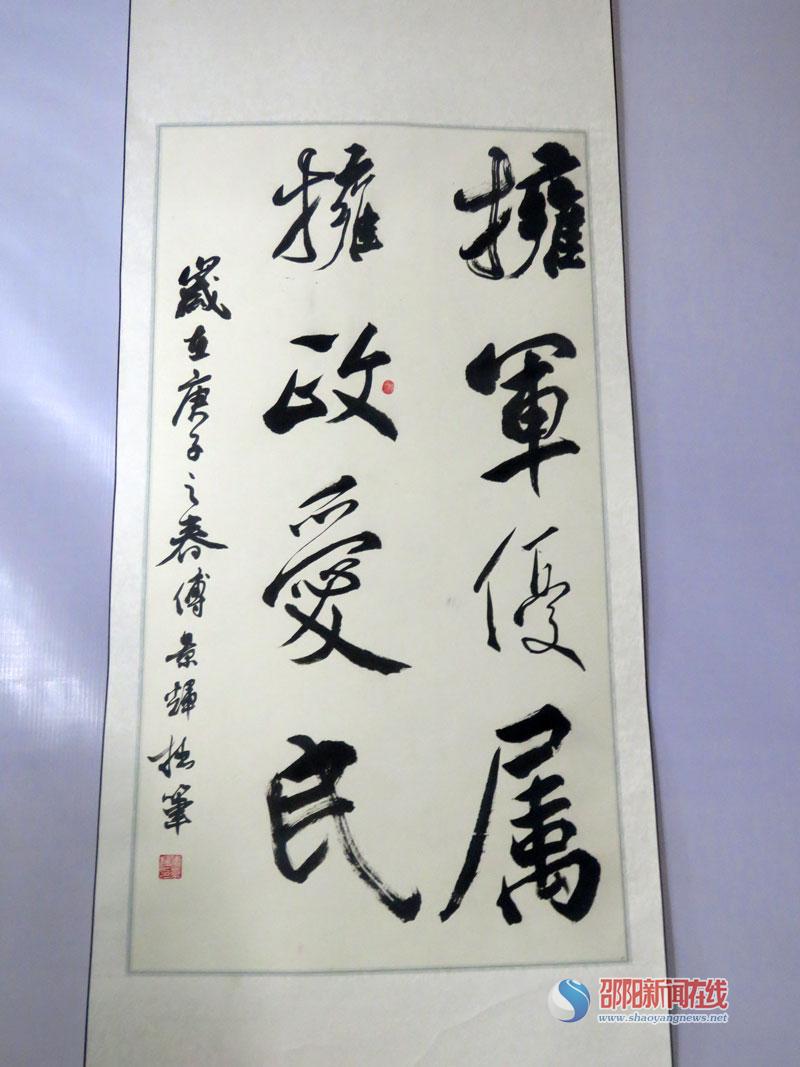 擁軍優属
擁政愛民
歲在庚子之春傅景輝拙筆
邵阳新闻在线
www.shaoyangnews.net